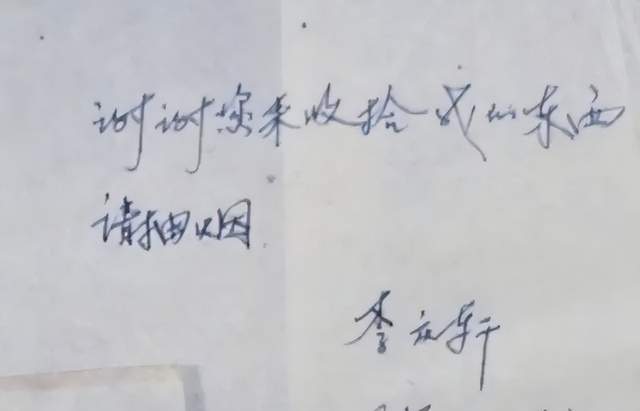 谢谢您来收拾我的东西
请抽烟
李庆轩